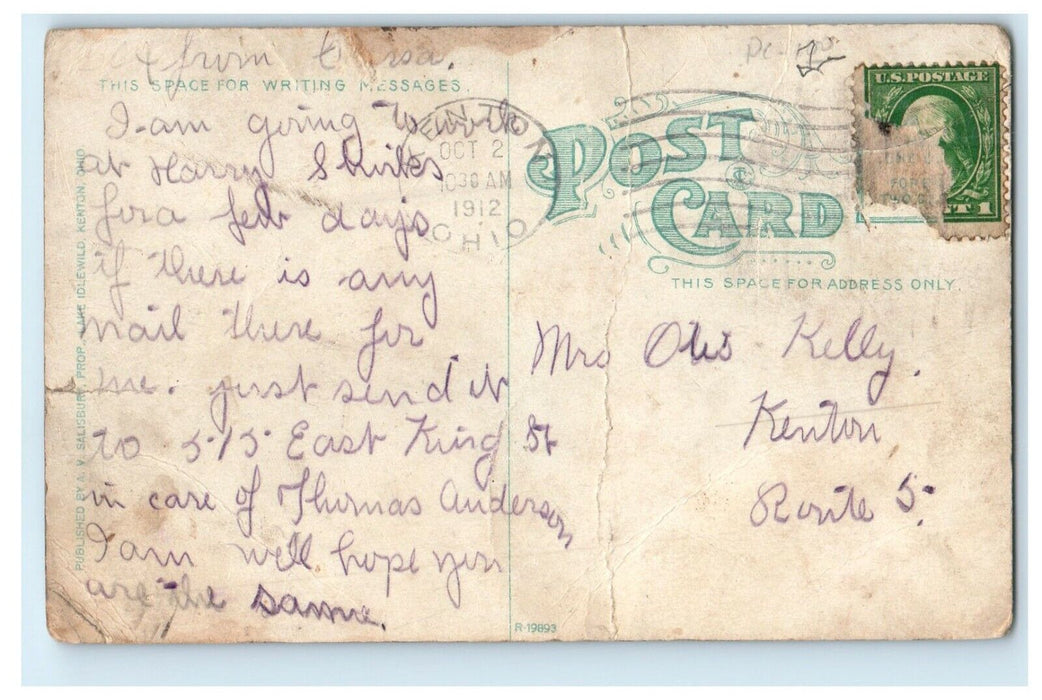 from
THIS SPACE FOR WRITING MESSAGES.
I am going to work
at Harry
for a few days
if there is any
mail there for
me. just send it
to 515 East King St
in care of Thomas Anderson
I am well hope you
are the same.
PUBLISHED BY A. V. SALISBURY, PROP., LAKE IDLEWILD, KENTON, OHIO
KENTON
OCT 2
1030 AM
1912
OHIO
POST CARD
THIS SPACE FOR ADDRESS ONLY.
U.S. POSTAGE
NT 1
Mrs Otis Kelly.
Kenton
Route 5.
R-19893